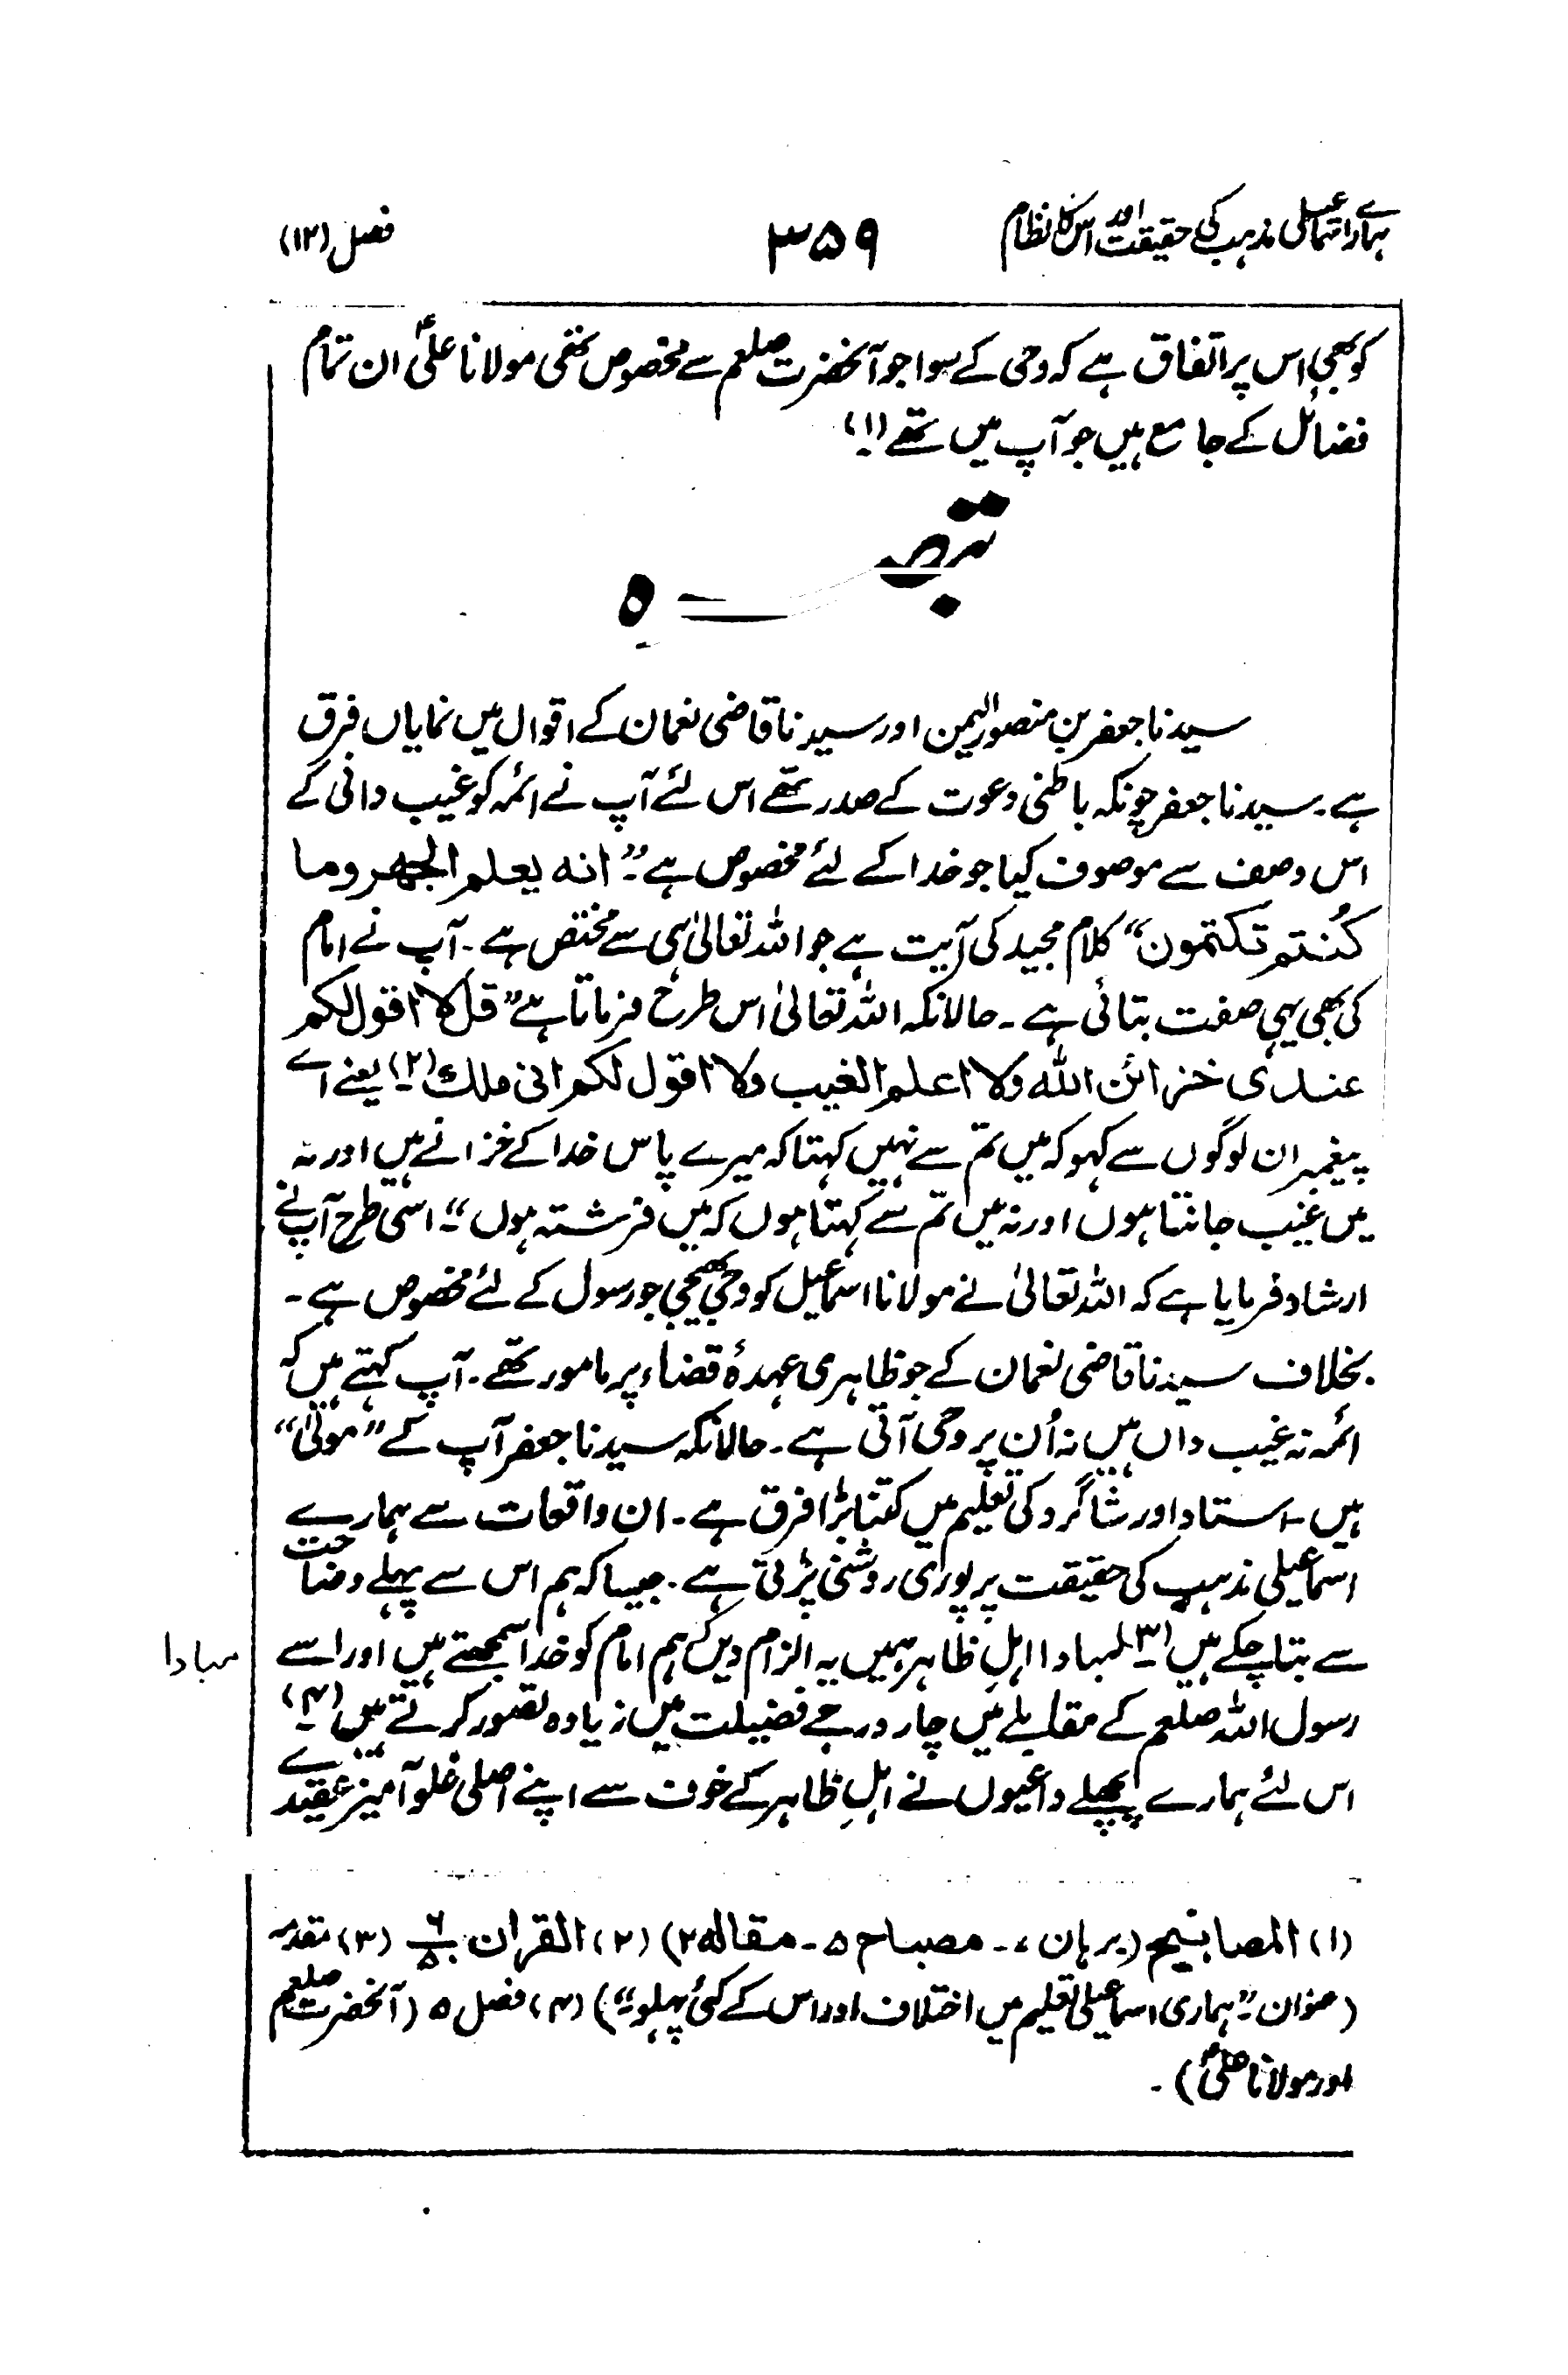 ہمارے اسماعیلی مذہب کی حقیقت اور اس کا نظام ۳۵۹ فصل (۱۳)
کو بھی اس پر اتفاق ہے کہ وحی کے سوا جو آنحضرت صلعم سے مخصوص تھی مولانا علیؑ ان تمام
فضائل کے جامع ہیں جو آپ میں تھے (۱)
تبصرہ
سیدنا جعفر بن منصور الیمن اور سیدنا قاضی نعمان کے اقوال میں نمایاں فرق
ہے۔ سیدنا جعفر چونکہ باطنی دعوت کے صدر تھے اس لئے آپ نے ائمہ کو غیب دانی کے
اس وصف سے موصوف کیا جو خدا کے لئے مخصوص ہے۔ "انه يعلم الجهر وما
كُنتم تكتمون" کلام مجید کی آیت ہے جو اللہ تعالیٰ ہی سے مختص ہے۔ آپ نے امام
کی بھی یہی صفت بتائی ہے۔ حالانکہ اللہ تعالیٰ اس طرح فرماتا ہے "قل لا اقول لكم
عندى خزائن الله ولا اعلم الغيب ولا اقول لكم انى ملك (۲) یعنے اے
پیغمبر ان لوگوں سے کہو کہ میں تم سے نہیں کہتا کہ میرے پاس خدا کے خزانے ہیں اور نہ
میں غیب جانتا ہوں اور نہ میں تم سے کہتا ہوں کہ میں فرشتہ ہوں"۔ اسی طرح آپ نے
ارشاد فرمایا ہے کہ اللہ تعالیٰ نے مولانا اسماعیل کو وحی بھیجی جو رسول کے لئے مخصوص ہے۔
بخلاف سیدنا قاضی نعمان کے جو ظاہری عہدۂ قضاء پر مامور تھے۔ آپ کہتے ہیں کہ
ائمہ نہ غیب داں ہیں نہ اُن پر وحی آتی ہے۔ حالانکہ سیدنا جعفر آپ کے "مولیٰ"
ہیں۔ استاد اور شاگرد کی تعلیم میں کتنا بڑا فرق ہے۔ ان واقعات سے ہمارے
اسماعیلی مذہب کی حقیقت پر پوری روشنی پڑتی ہے۔ جیسا کہ ہم اس سے پہلے وضاحت
سے بتا چکے ہیں (۳) لمبادا اہلِ ظاہر ہمیں یہ الزام دیں کہ ہم امام کو خدا سمجھتے ہیں اور اسے
مبادا
رسول اللہ صلعم کے مقابلے میں چار درجے فضیلت میں زیادہ تصور کرتے ہیں (۴)
اس لئے ہمارے پچھلے داعیوں نے اہلِ ظاہر کے خوف سے اپنے اصلی غلو آمیز عقیدے
(۱) المصابیح (برہان ۷۔ مصباح ۵۔ مقاله ۲) (۲) القران ۶/۵ (۳) مقدمہ
(عنوان "ہماری اسماعیلی تعلیم میں اختلاف اور اس کے کئی پہلو"۔) (۴) فصل ۵ (آنحضرت صلعم
اور مولانا علیؑ)۔